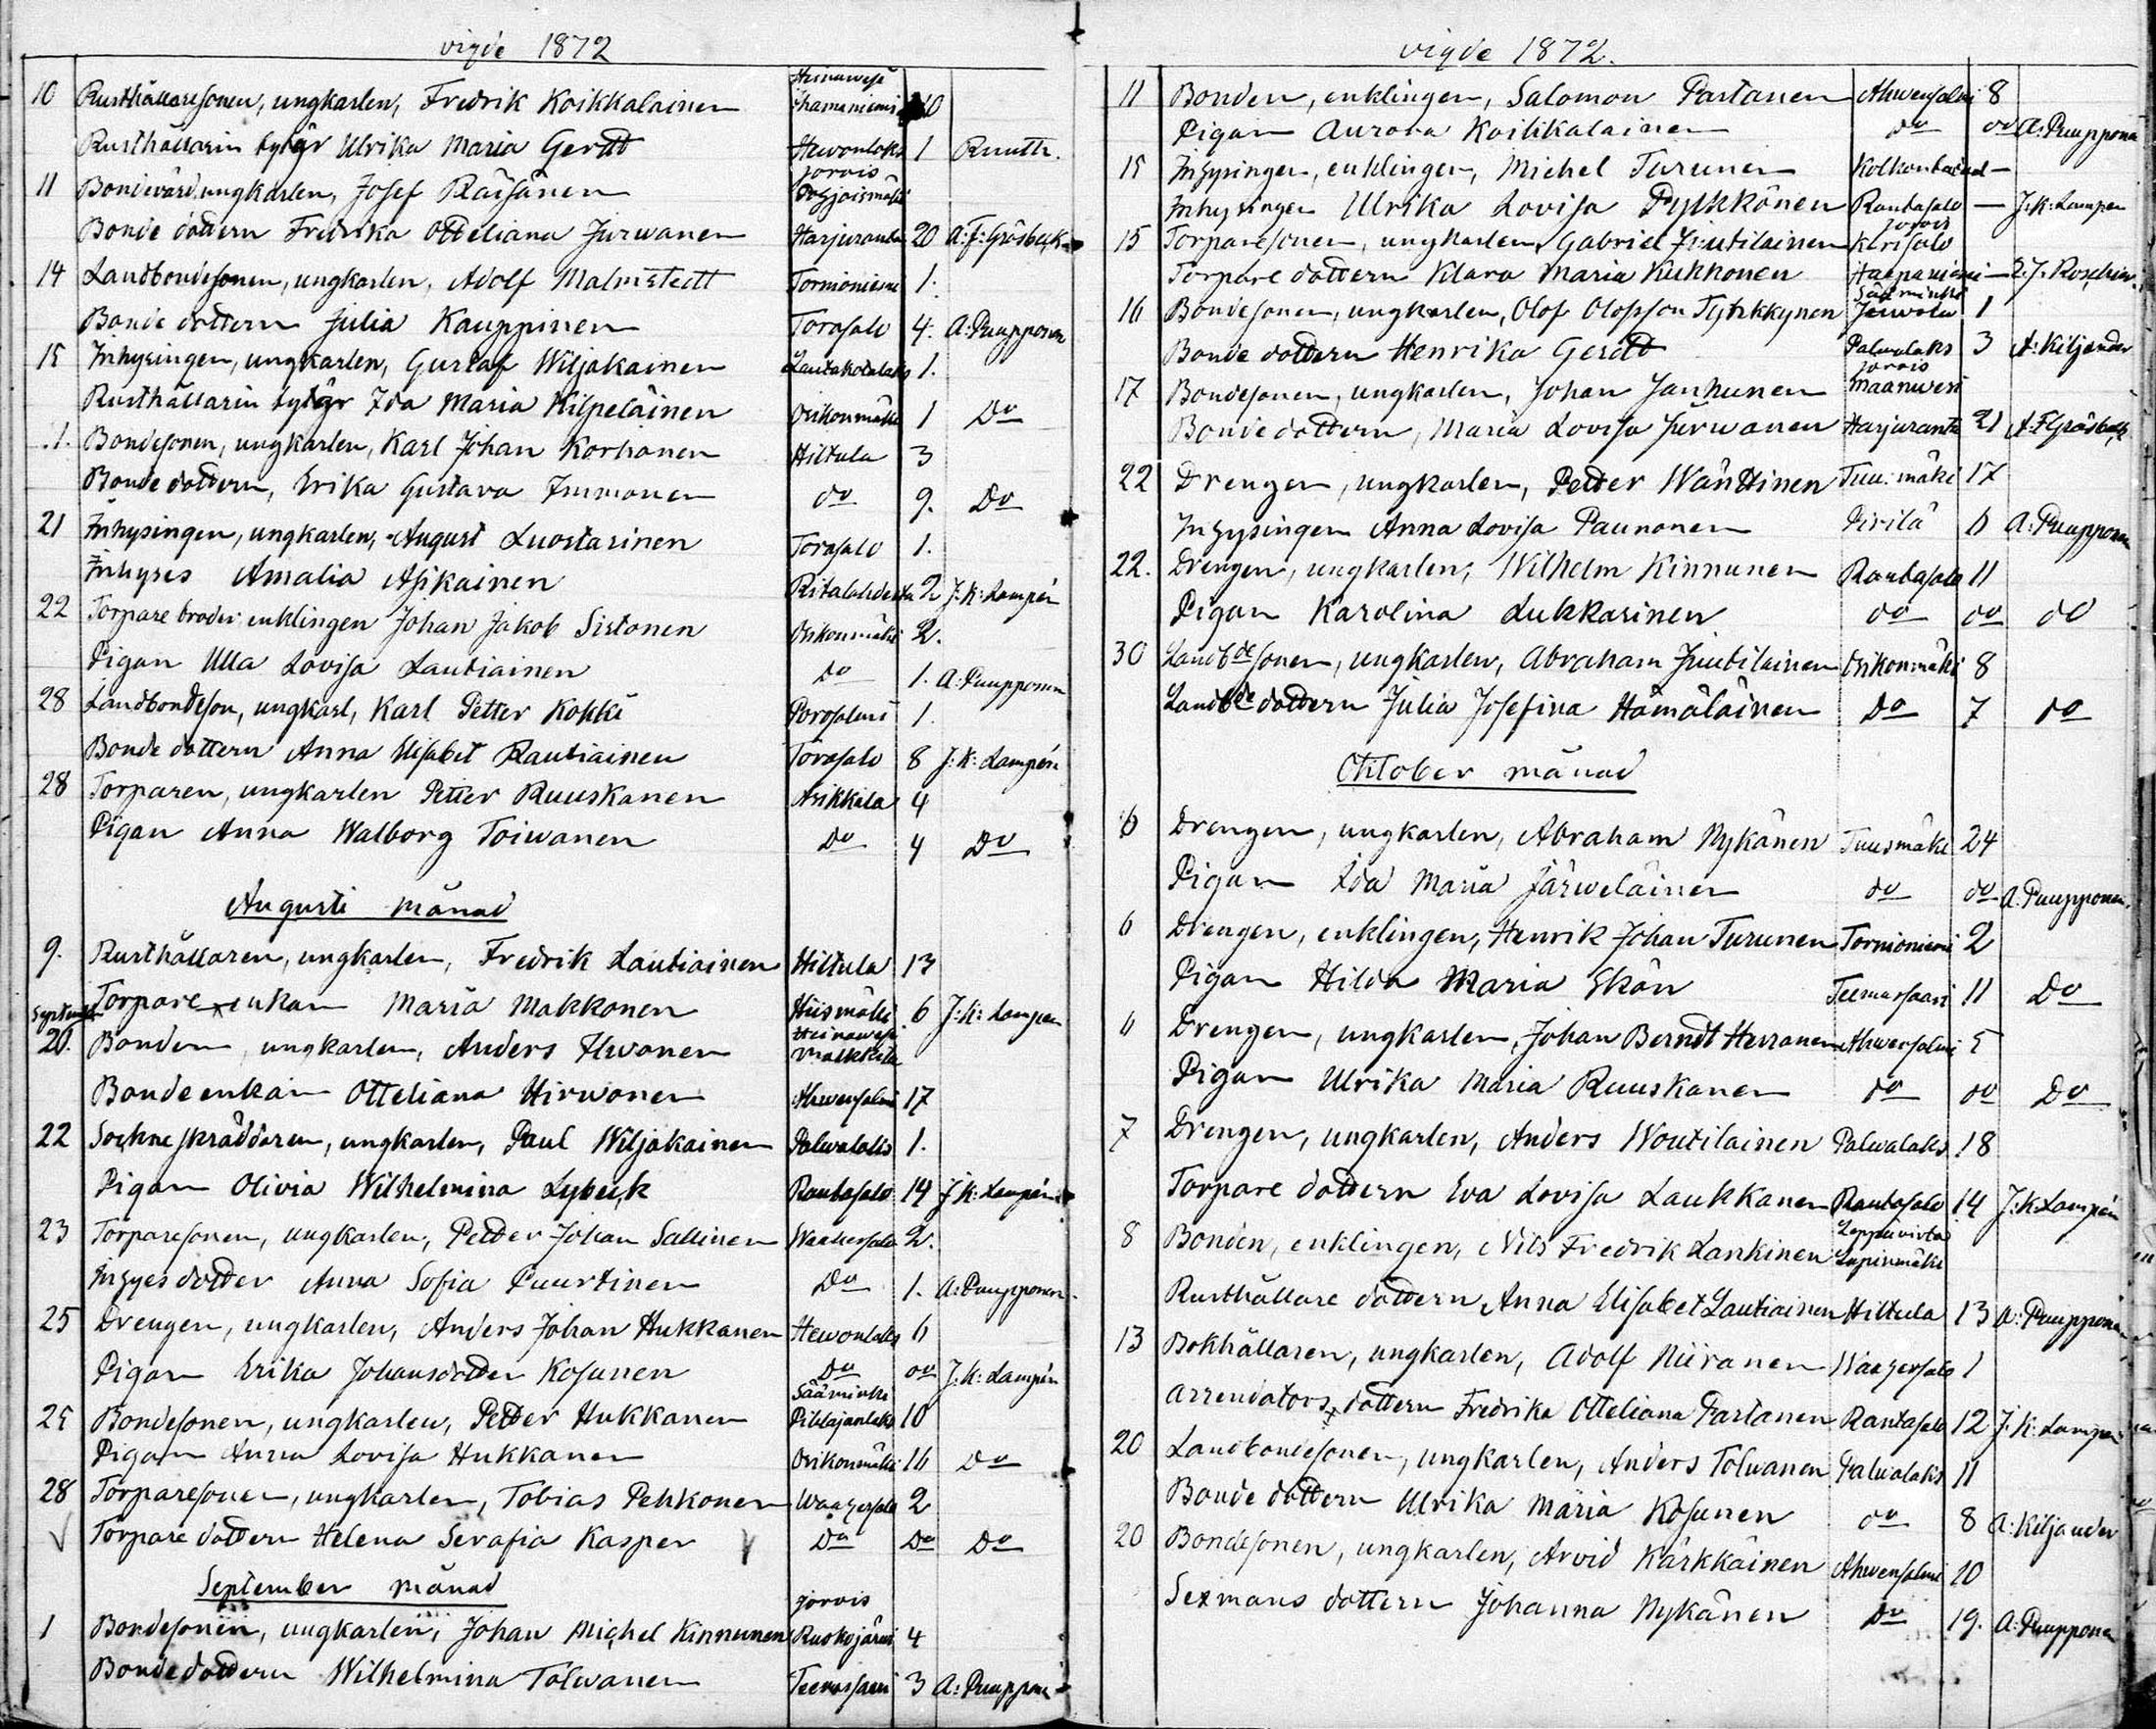 vigde 1872
Heinawesi
10 Rusthållaresonen, ungkarlen, Fredrik Koikkalainen Ihamaniemi 10
Rusthållarin tytär Ulrika Maria Gerdt Hevonlaks 1 Ruuth.
Jorois
11 Bondevärd. ungkarlen, Josef Räisänen
Bonde dottern Fredrika Otteliana Jurwanen Harjuranta 20 A: F: Gråsbeck
14 Landbondesonen, ungkarlen, Adolf Malmstedt Tornioniemi 1.
Bonde dottern Julia Kauppinen Torasalo 4. A: Puupponen
15 Inhysingen, ungkarlen, Gustaf Wiljakainen Lautakotalaks 1.
Rusthållarin tytär Ida Maria Hilpeläinen Osikonmäki 1 Do
1. Bondesonen, ungkarlen, Karl Johan Korhonen Hiltula 3
Bonde dottern, Erika Gustava Immonen do 9. Do
21 Inhysingen, ungkarlen, August Luostarinen Torasalo 1.
Inhyses Amalia Asikainen Ritalahdenta 2 J: K: Lampén
22 Torpare broder enklingen Johan Jakob Sistonen Osikonmäki 2.
Pigan Ulla Lovisa Lautiainen Do 1. A: Puupponen
28 Landbondeson, ungkarl, Karl Petter Kokki Porosalmi 1.
Bonde dottern Anna Elisabet Rautiainen Torasalo 8 J: K: Lampén
28 Torparen, ungkarlen Petter Ruuskanen Asikkala 4
Pigan Anna Walborg Toiwanen Do 4 Do
Augusti månad
9. Rusthållaren, ungkarlen, Fredrik Lautiainen Hiltula 13
Torpare enkan Maria Makkonen Hiismäki 6 J: K: Lampén
September Heinawesi
20. Bonden, ungkarlen, Anders Ihvonen Malkkila
Bonde enkan Otteliana Hirwonen Ahvensalmi 17
22 Sockne skräddaren, ungkarlen, Paul Wiljakainen Palvalaks 1.
Pigan Olivia Wilhelmina Lybeck Rantasalo 14 J: K: Lampén
23 Torparesonen, ungkarlen, Petter Johan Sallinen Waahersalo 2.
Inhyses dotter Anna Sofia Puurtinen Do 1. A: Puupponen
25 Drengen, ungkarlen, Anders Johan Hukkanen Hevonlaks 6
Pigan Erika Johansdotter Kosunen Do do J: K: Lampén
Sääminki
25 Bondesonen, ungkarlen, Petter Hukkanen Pihlajanlaks 10
Pigan Anna Lovisa Hukkanen Osikonmäki 16 Do
28 Torparesonen, ungkarlen, Tobias Pehkonen Waahersalo 2
Torpare dottern Helena Serafia Kasper Do Do Do
September månad
Jorois
1 Bondesonen, ungkarlen, Johan Michel Kinnunen Ruokojärvi 4
Bonde dottern Wilhelmina Tolwanen Teemassaari 3 A: Puupponen
vigde 1872.
11 Bonden, enklingen, Salomon Partanen Ahvensalmi 8
Pigan Aurora Koikkalainen do do A: Puupponen
15 Inhysingen, enklingen, Michel Turunen Kolkontaival —
Inhysingen Ulrika Lovisa Pylkkönen Rantasalo — J: K: Lampén
Jorois
15 Torparesonen, ungkarlen, Gabriel Juutilainen Kerisalo
Torpare dottern Klara Maria Kukkonen Haapaniemi —
Sääminki
16 Bondesonen, ungkarlen, Olof Olofsson Tynkkynen 1
Bonde dottern Henrika Gerdt Palvalaks 3 A: Kiljander
Jorois
17 Bondesonen, ungkarlen, Johan Janhunen Maanwesi
Bonde dottern, Maria Lovisa Jurwanen Harjuranta 21 A. F Gråsbeck
22 Drengen, ungkarlen, Petter Wänttinen Tuusmäki 17
Inhysingen Anna Lovisa Paunonen Pirilä 6 A: Puupponen
22. Drengen, ungkarlen, Wilhelm Kinnunen Rantasalo 11
Pigan Karolina Lukkarinen do do do
30 Landbde sonen, ungkarlen, Abraham Juutilainen Osikonmäki 8
Landbde dottern Julia Josefina Hämäläinen Do 7 do
Oktober månad
6 Drengen, ungkarlen, Abraham Nykänen Tuusmäki 24
Pigan Ida Maria Järweläinen do do A: Puupponen.
6 Drengen, enklingen, Henrik Johan Turunen Tornioniemi 2
Pigan Hilda Maria Skön Teemassaari 11 Do
6 Drengen, ungkarlen, Johan Berndt Herranen Ahvensalmi 5
Pigan Ulrika Maria Ruuskanen do do Do
7 Drengen, ungkarlen, Anders Woutilainen Palvalaks 18
Torpare dottern Eva Lovisa Laukkanen Rantasalo 14 J: K: Lampén
Leppävirta
8 Bonden, enklingen, Nils Fredrik Lankinen Lapinmäki
Rusthållare dottern, Anna Elisabet Lautiainen Hiltula 13 A: Puupponen
13 Bokhållaren, ungkarlen, Adolf Niiranen Waahersalo 1
Arrendators dottern Fredrika Otteliana Partanen Rantasalo 12 J: K: Lampén
20 Landbondesonen, ungkarlen, Anders Tolwanen Palvalaks 11
Bonde dottern Ulrika Maria Kosunen do 8 A: Kiljander
20 Bondesonen, ungkarlen, Arvid Kärkkäinen Ahvensalmi 20
Sexmans dottern Johanna Nykänen Do 19. A: Puupponen